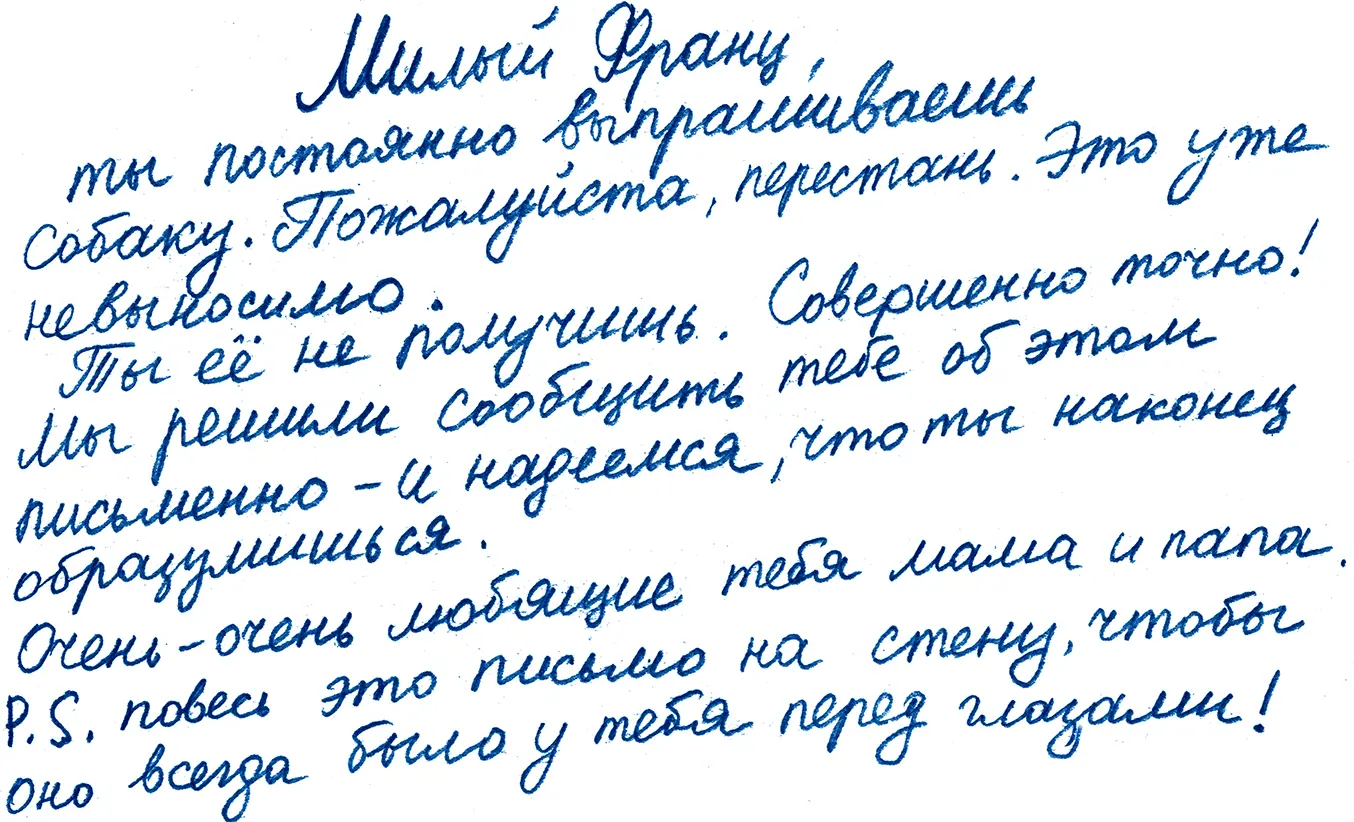 Милый Франц,
ты постоянно выпрашиваешь
собаку. Пожалуйста, перестань. Это уже
невыносимо.
Ты её не получишь. Совершенно точно!
Мы решили сообщить тебе об этом
письменно – и надеемся, что ты наконец
образумишься.
Очень-очень любящие тебя мама и папа.
P.S. повесь это письмо на стену, чтобы
оно всегда было у тебя перед глазами!